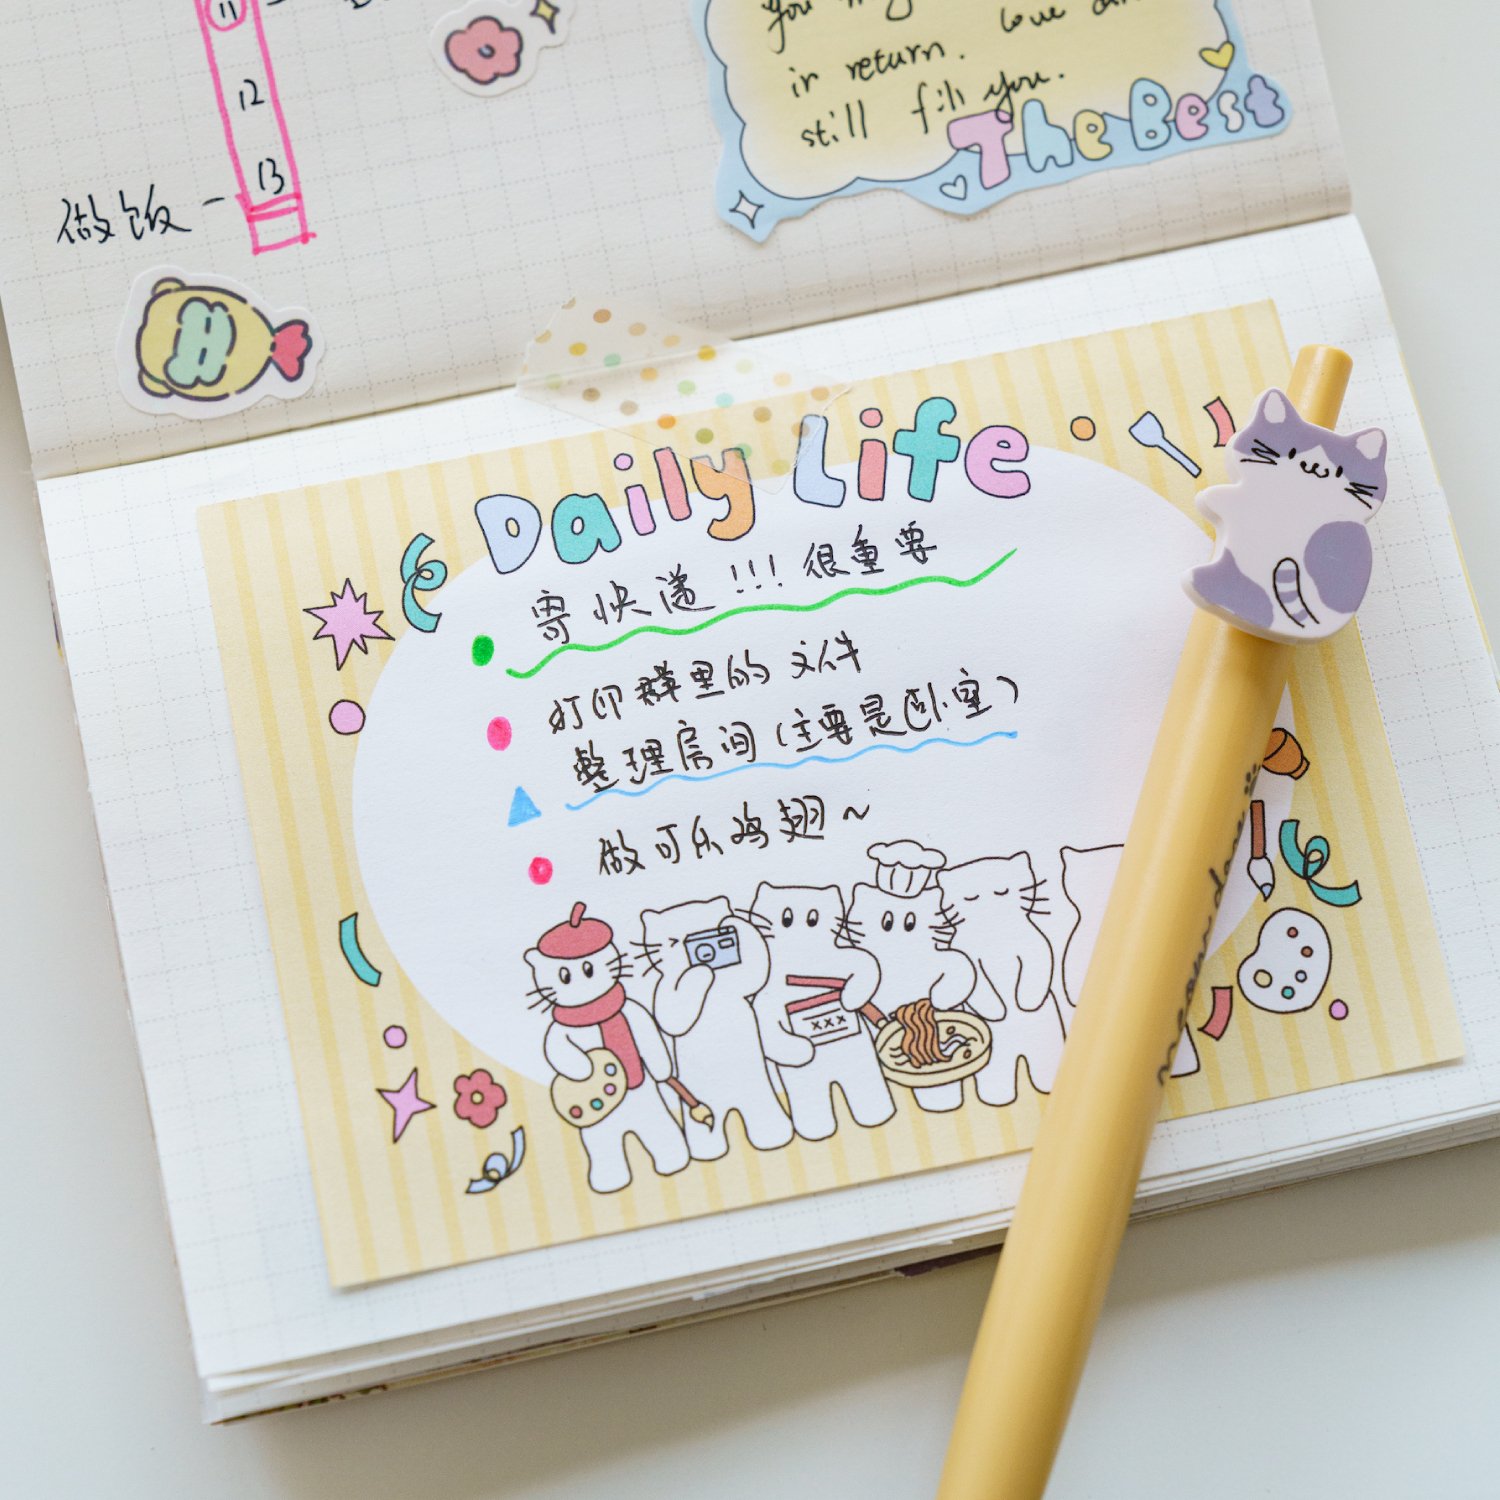 11
12
13
做饭
You my
in return. love an
still fill you.
The Best
Daily Life
寄快递!!!很重要
打印群里的文件
整理房间(主要是卧室)
做可乐鸡翅~
XXX
meow day